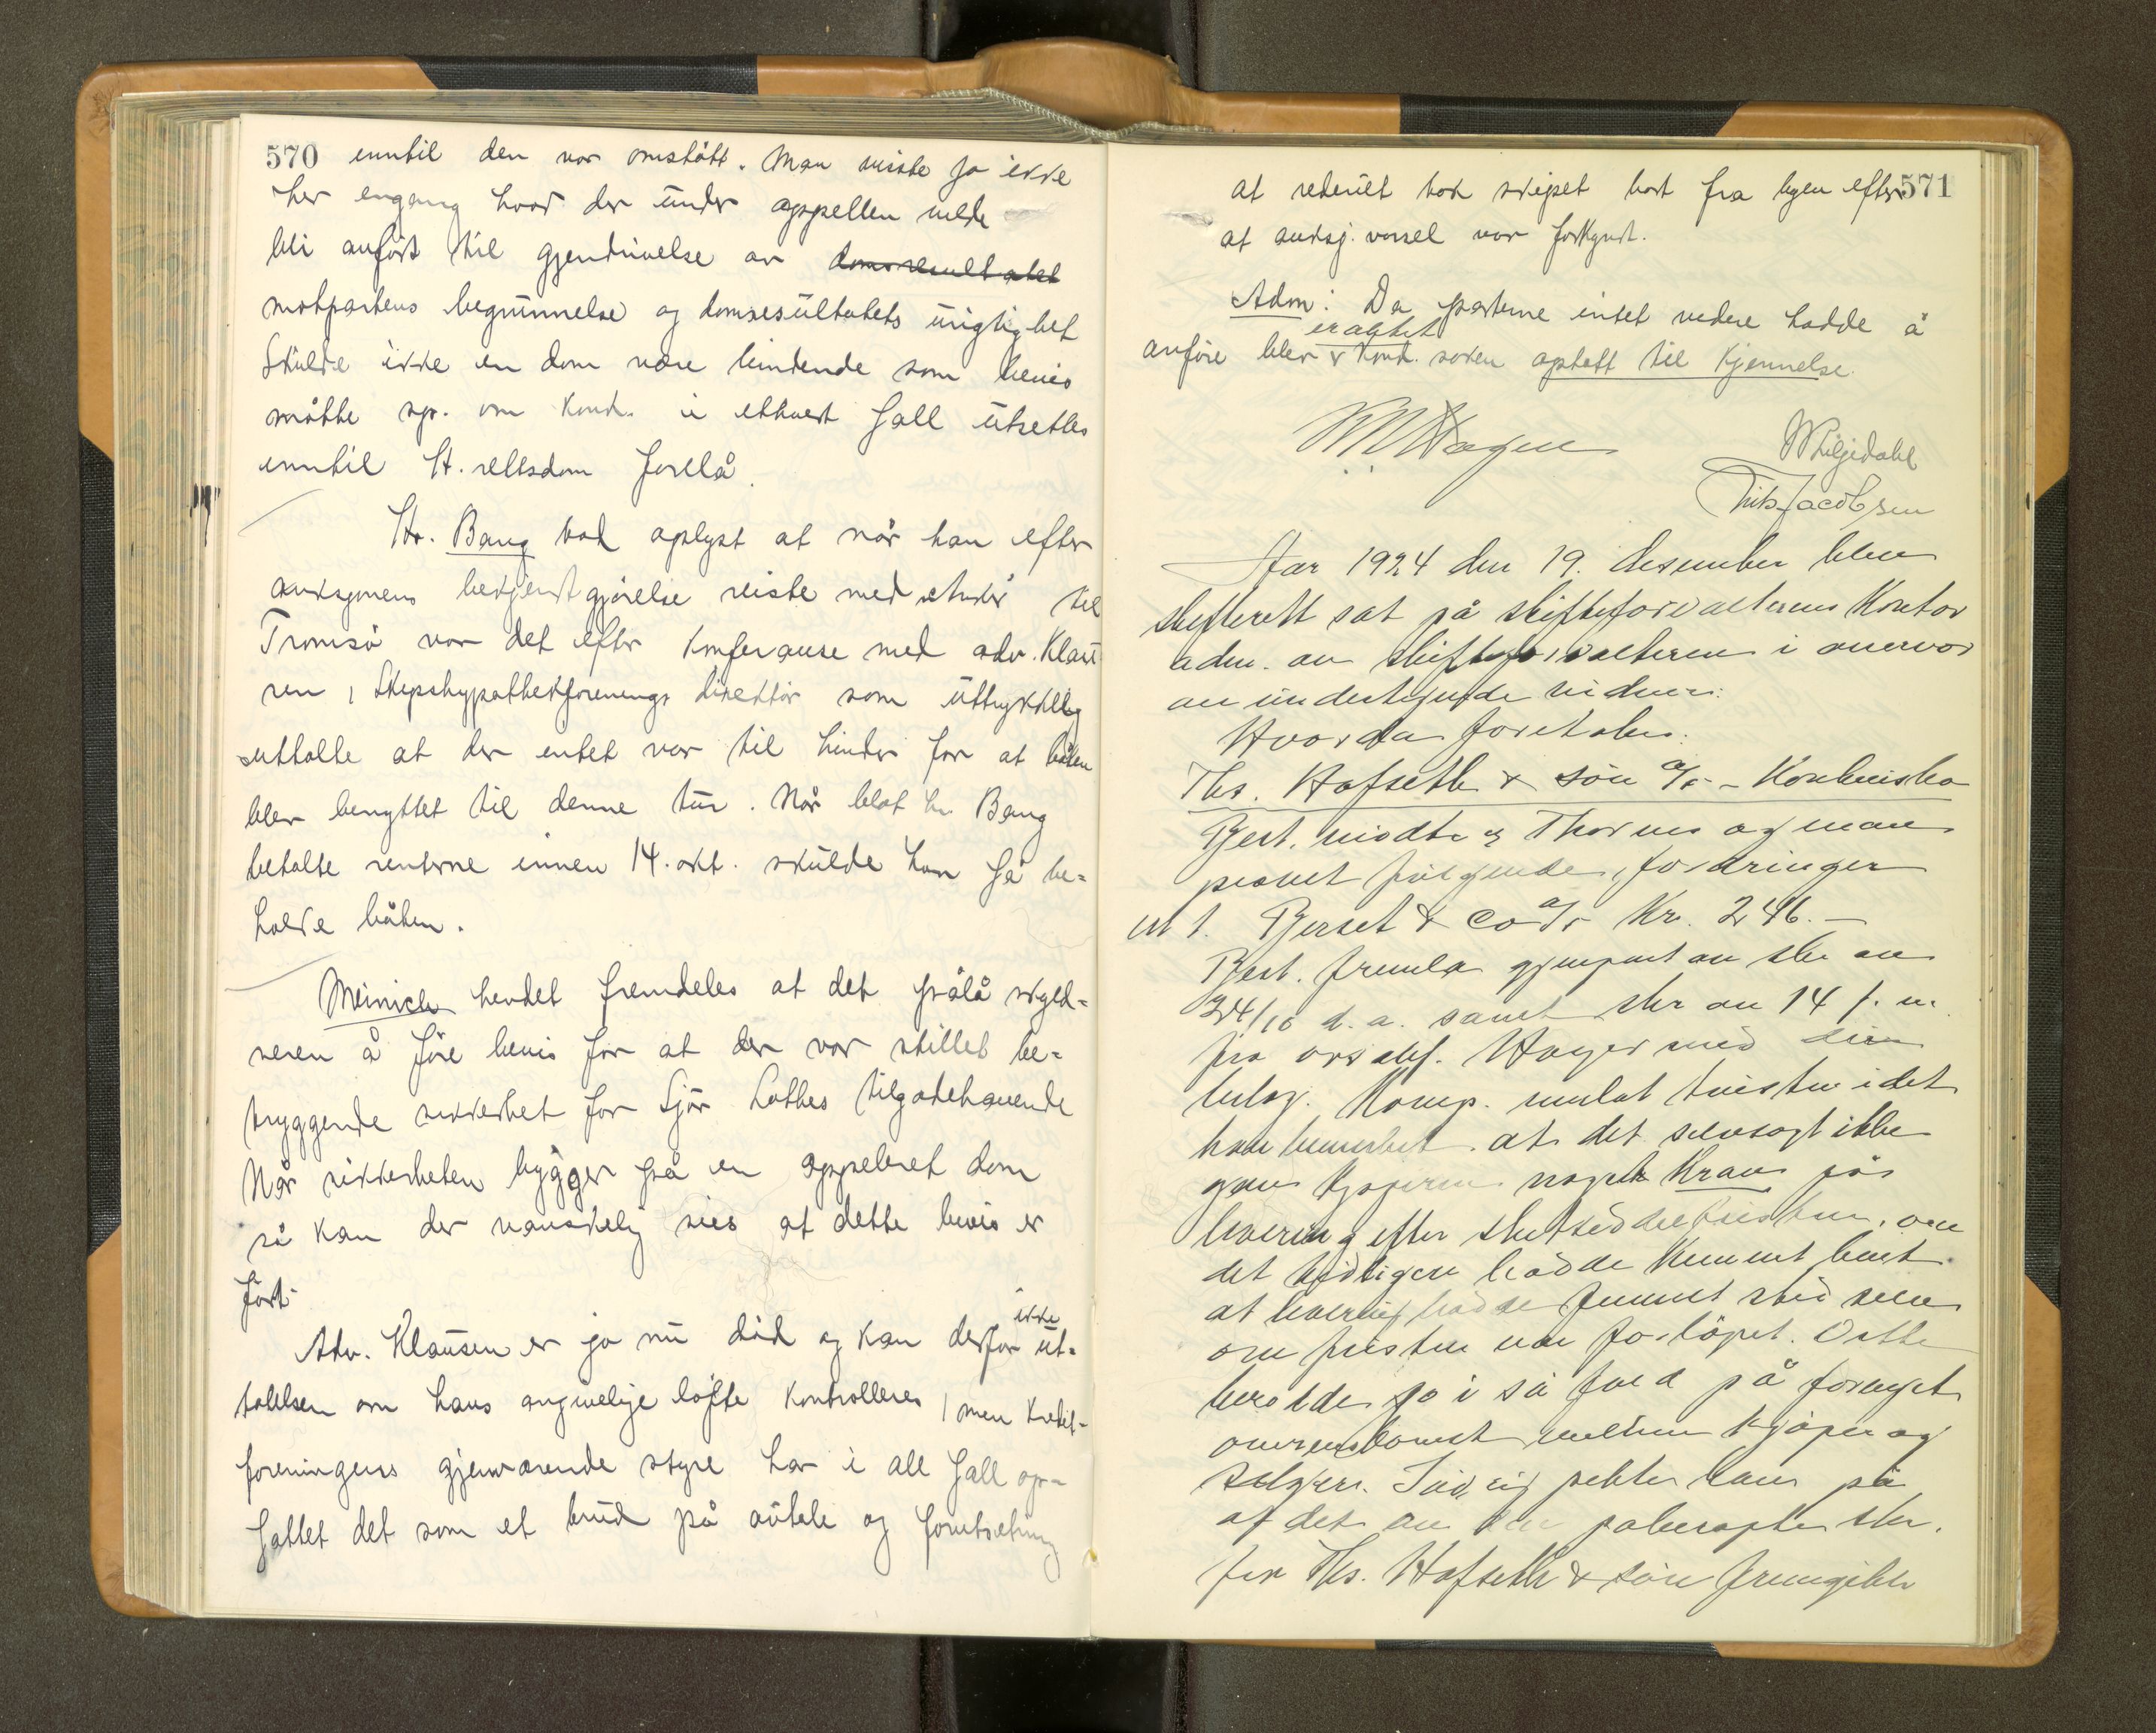 570 inntil den var omstått. Man visste jo ikke
her engang hvad der under appellen vilde
bli anført til gjendrivelse av domsresultatet
motpartens begrunnelse og domsresultatets urigtighet
Skulde ikke en dom være bindende som bevis
måtte sp. om konk. i ethvert fall utsettes
inntil H. rettsdom forelå.
Hr. Bang bad oplyst at når han efter
auksjonens bekjentgjørelse reiste med til
Tromsø var det efter konferanse med adv. Klau
sen, Skipshypothekforenings direktør som uttrykkelig
uttalte at der intet var til hinder for at båten
blev benyttet til denne tur. Når blot hr. Bang
betalte renterne innen 14. okt. skulde han få be=
holde båten.
Meinich hevdet fremdeles at det pålå skyld=
neren å føre bevis for at der var stillet be=
tryggende sikkerhet for Sjøv Lothes tilgodehavende
Når sikkerheten bygger på en appelleret dom
så kan der vanskelig sies at dette bevis er
ført.
Adv. Klausen er jo nu død og kan derfor ikke ut=
talelsen om hans angivelige løfte kontrolleres, men kredit=
foreningens gjenværende styre har i all fall op=
fattet det som et brud på avtale og forutsetning
571
at rederiet tok skipet bort fra byen efter
at auksj. varsel var forkynt.
Adm: Da parterne intet videre hadde å
anføre blev eragtet v konk. saken optatt til kjennelse.
Hagen
Liljedahl
Jacobsen
Aar 1924 den 19. desember blev
skifterett sat på skifteforvalterens Kontor
adm. av skifteforvalteren i overvær
av undertegnede vidner:
Hvorda foretokes:
Ths. Hafseth & søn a/s - Konkursbo
Best. møtte og Thornes og man
prøvet følgende fordringer
nr 1. Bjerset & co a/s Kr. 246.-
Best. fremla gjenpart av skr av
24/10 d. a. samt skr av 14 f. m.
fra ors akf. Hoyer med
bilag. Komp. imøtekom tvisten idet
han bemerket at det selvsagt ikke
gav kjøperen noget Krav på
levering efter sluttseddelfristen, om
det tidligere hadde kunnet hent
at levering hadde funnet sted selv
om fristen var forløpet. Dette
beroede jo i så fald på fornyet
overenskomst mellem kjøper og
selger. Forøvrig pekte han på
at det av den påberopte skr.
fra Ths. Hafseth & søn fremgikk